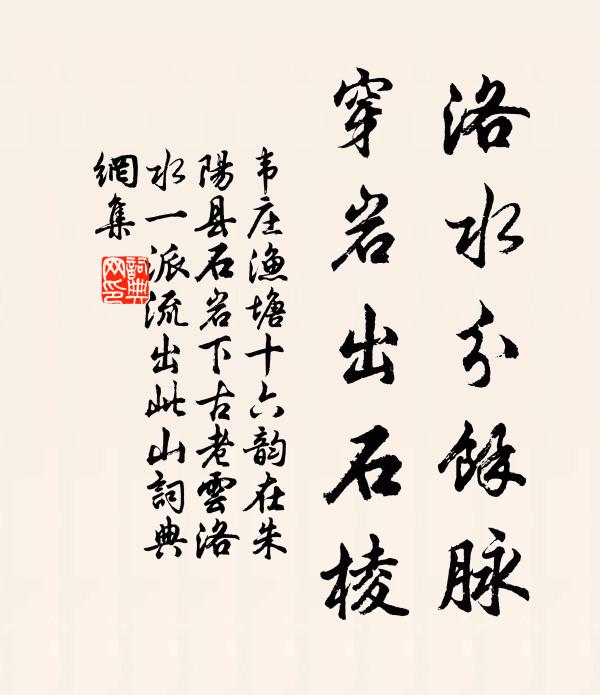 洛水分餘脉
穿岩出石棱
韦庄漁塘十六韵在朱
陽县石岩下古老雲洛
水一派流出此山詞典
網集
詞典网印